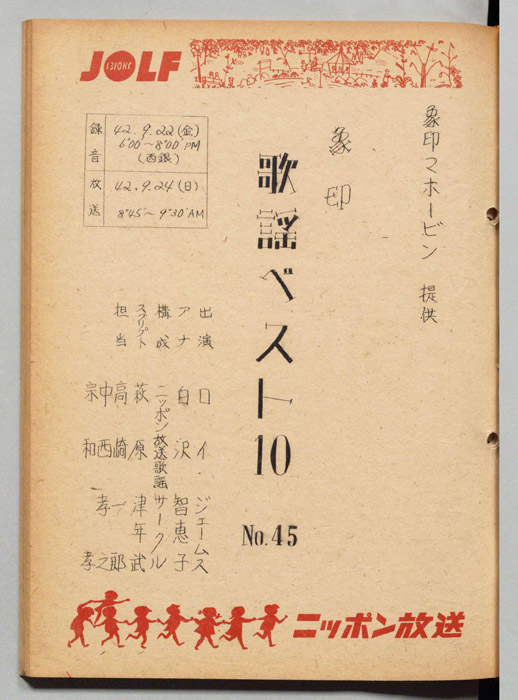 JOLF
1310KC
録音 42.9.22(金)
6:00~8:00 PM
(西銀)
放送 42.9.24(日)
8:45~9:30 AM
象印マホービン 提供
象印
歌謡ベスト10
No.45
出演 ロイ・ジェームス
アナ 白沢智恵子
構成 ニッポン放送歌謡サークル
スクリプト 萩原津年武
担当 高崎一郎
中西孝之
宗和孝
ニッポン放送